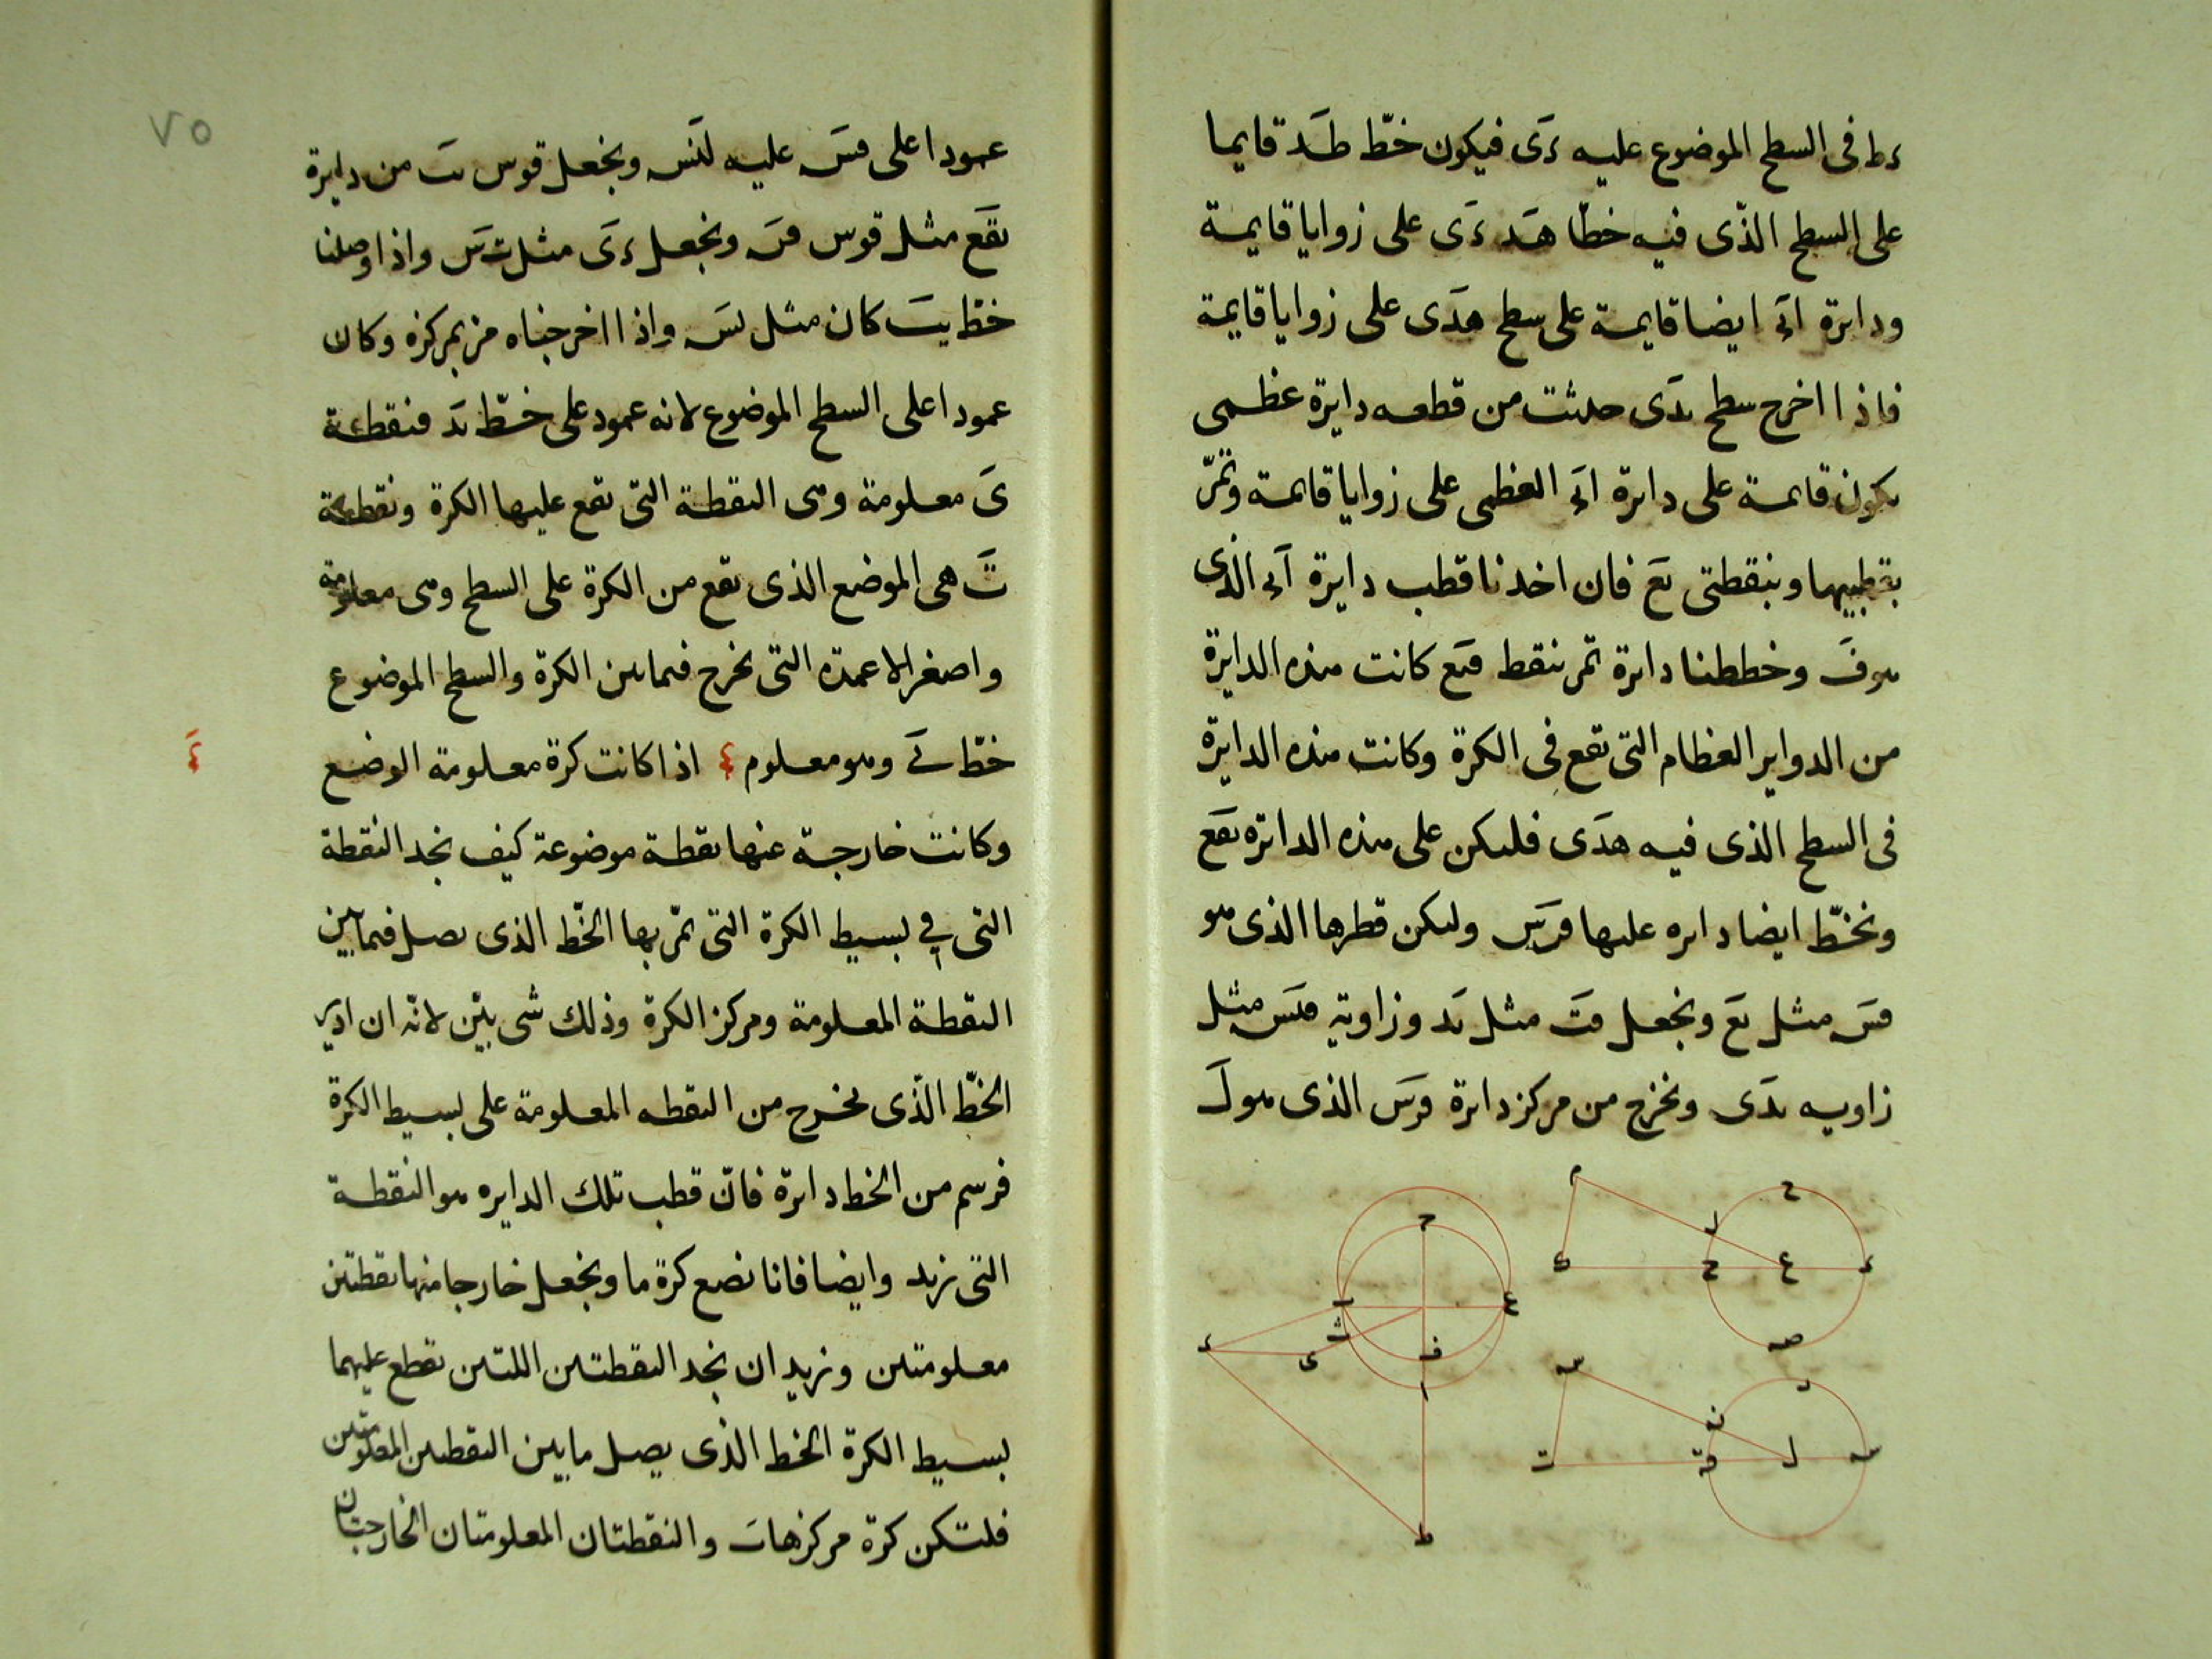 ءط فى السطح الموضوع عليه ءى فيكون خطّ طد قايما
على السطح الذّى فيه خطّا هد ءى على زوايا قايمة
ودايرة اٮء ايضا قايمة على سطح هدى على زوايا قايمة
فاذا اخرج سطح ٮدى حدثت من قطعه دايرة عظمى
ٮكون قاٮمة على داٮرة اٮء العظمى على زوايا قاٮمة وتمرّ
بقطبيها وبنقطتى ٮع فان اخذنا قطب دايرة اٮء الذى
هو ف وخططنا داٮرة تمر بنقط فٮع كانت هذه الدايرة
من الدواير العظام التى تقع فى الكرة وكانت هذه الدايرة
فى السطح الذى فيه هدى فلٮكن على هذه الداٮرة ٮفع
ونخطّ ايضا داٮره علٮها قرس ولٮكن قطرها الذى هو
قس مثل ٮع ونجعل قت مثل ٮد وزاوية مثل
زاويه ٮدى ونخرج من مركز داٮرة قرس الذى هو ل
ح
م
ل
ح
ك ج ع ء
ص
ب ع
ث
ء ى ف
ا
ط
س
ر
ن
ت ق ل س
٧٥
عمودا على عليه لنس ونجعل قوس ٮث من دايرة
ٮفع مثل قوس قن ونجعل ءى مثل ت س واذا وصلنا
خطّ يث كان مثل نس واذا اخرجناه مرّ بمركزه وكان
عمودا على السطح الموضوع لانه عمود على خطّ ٮد فنقطة
ى معلومة وهى النقطة التى تقع عليها الكرة ونقطة
ث هى الموضع الذى ٮقع من الكرة على السطح وهى معلومة
واصغر الاعمدة التى تخرج فٮما ٮٮن الكرة والسطح الموضوع
خطّ وهو معلوم ء اذا كانت كرة معلومة الوضع
ء
وكانت خارجة عنها ٮقطة موضوعة كيف نجد النقطة
التى فى بسيط الكرة التى تمرّ بها الخطّ الذى ٮصل فيما بين
النقطة المعلومة ومركز الكرة وذلك شى بيّن لانّه ان ادير
الخطّ الذّى ٮخرج من النقطه المعلومة على بسيط الكرة
فرسم من الخط داٮرة فانّ قطب تلك الدايره هو النقطة
التى نريد وايضا فانا نضع كرة ما ونجعل خارجا منها نقطتين
معلومتٮن ونريد ان نجد النقطتٮن اللتٮن تقطع عليهما
بسيط الكرة الخط الذى يصل ما بين النقطتٮن المعلومتٮن
فلتكن كرة مركزها ٮ والنقطتان المعلومتان الخارجتان